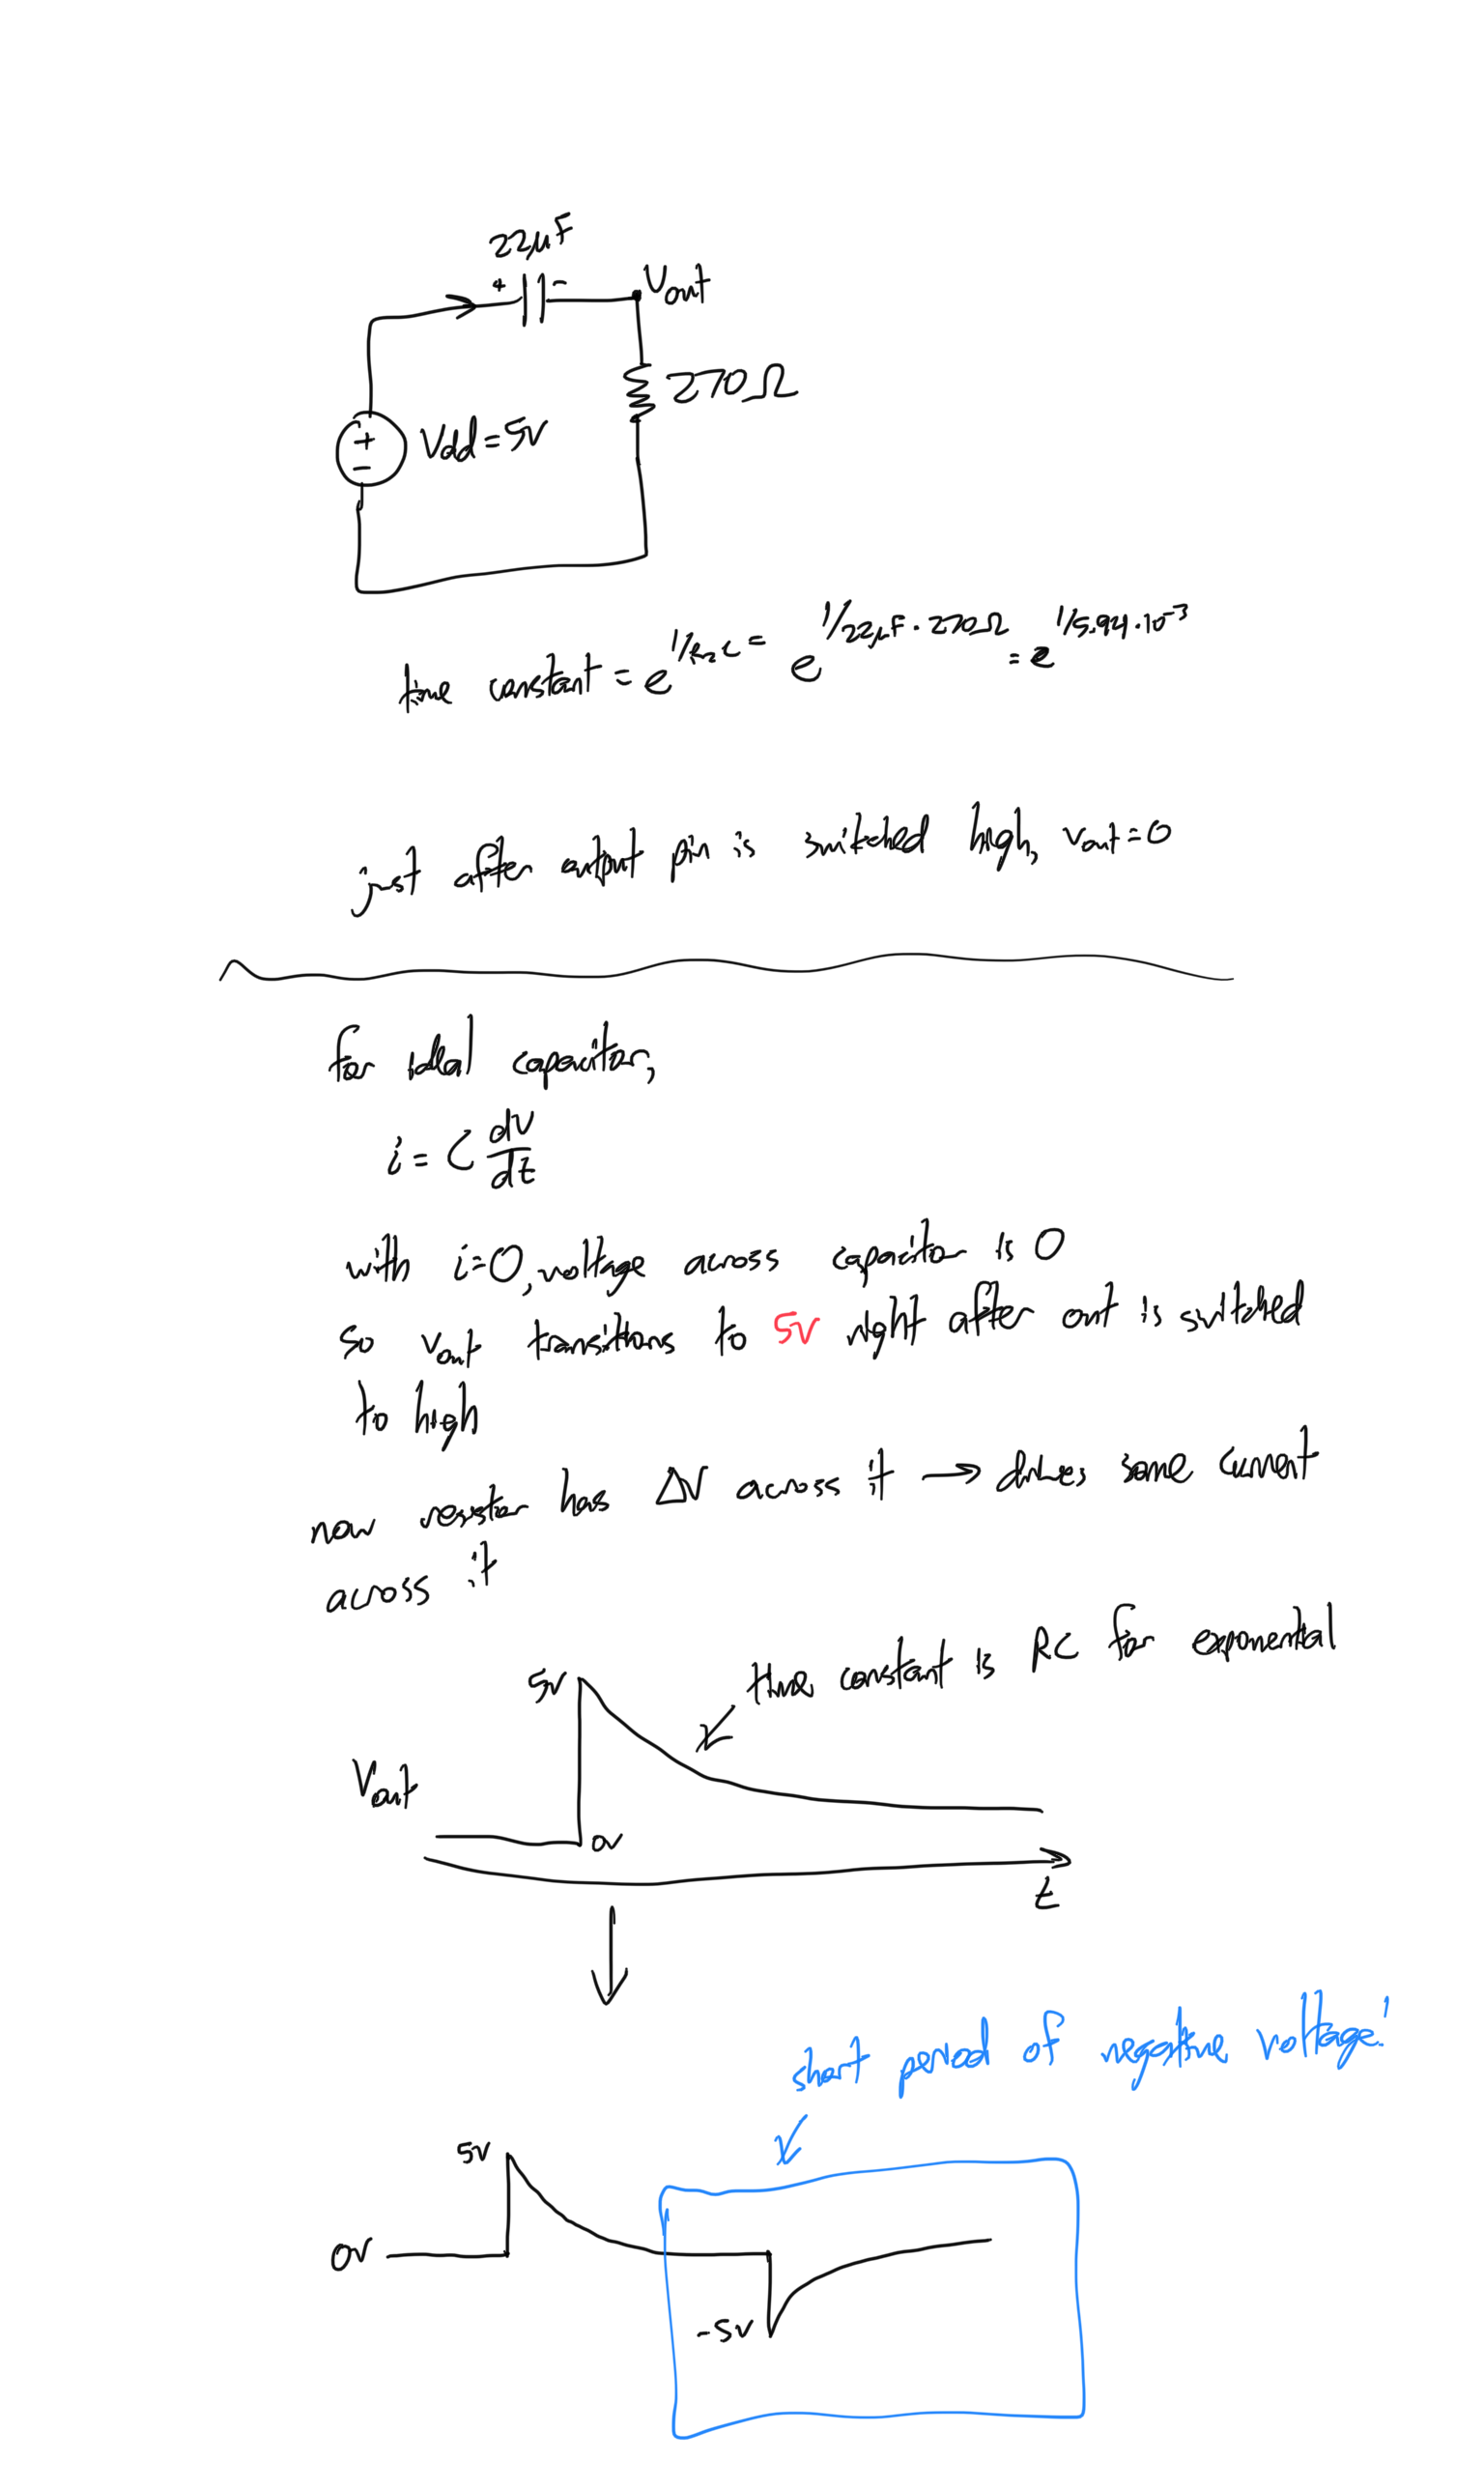 22μF
+ -
Vout
270Ω
+
-
Vdd=5v
time constant = e^1/RC = e^1/22μF·270Ω = e^1/5.94·10^-3
just after output pin is switched high, vout=0
for ideal capacitor,
i = C dv/dt
with i=0, voltage across capacitor is 0
so vout transitions to 5v right after out is switched
to high
now resistor has ΔV across it → drives some current
across it
time constant is RC for exponential
5v
Vout
0v
t
short period of negative voltage!
5v
0v
-5v